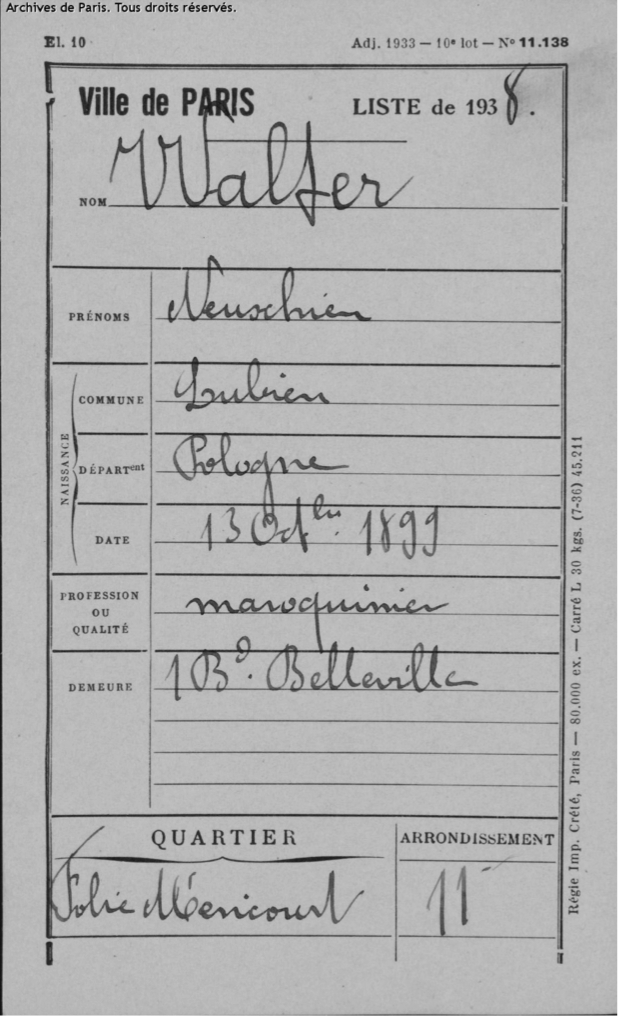 Archives de Paris. Tous droits réservés.
El. 10
Adj. 1933 — 10e lot — No 11.138
Ville de PARIS
LISTE de 1938.
NOM Walfer
PRÉNOMS Neuschien
NAISSANCE
COMMUNE Lubien
DÉPARTent Pologne
DATE 13 Octbre 1899
PROFESSION OU QUALITÉ maroquinier
DEMEURE 1 Bd. Belleville
QUARTIER
ARRONDISSEMENT
Folie Méricourt
11
Régie Imp. Crété, Paris — 80.000 ex. — Carré L 30 kgs. (7-36) 45.211